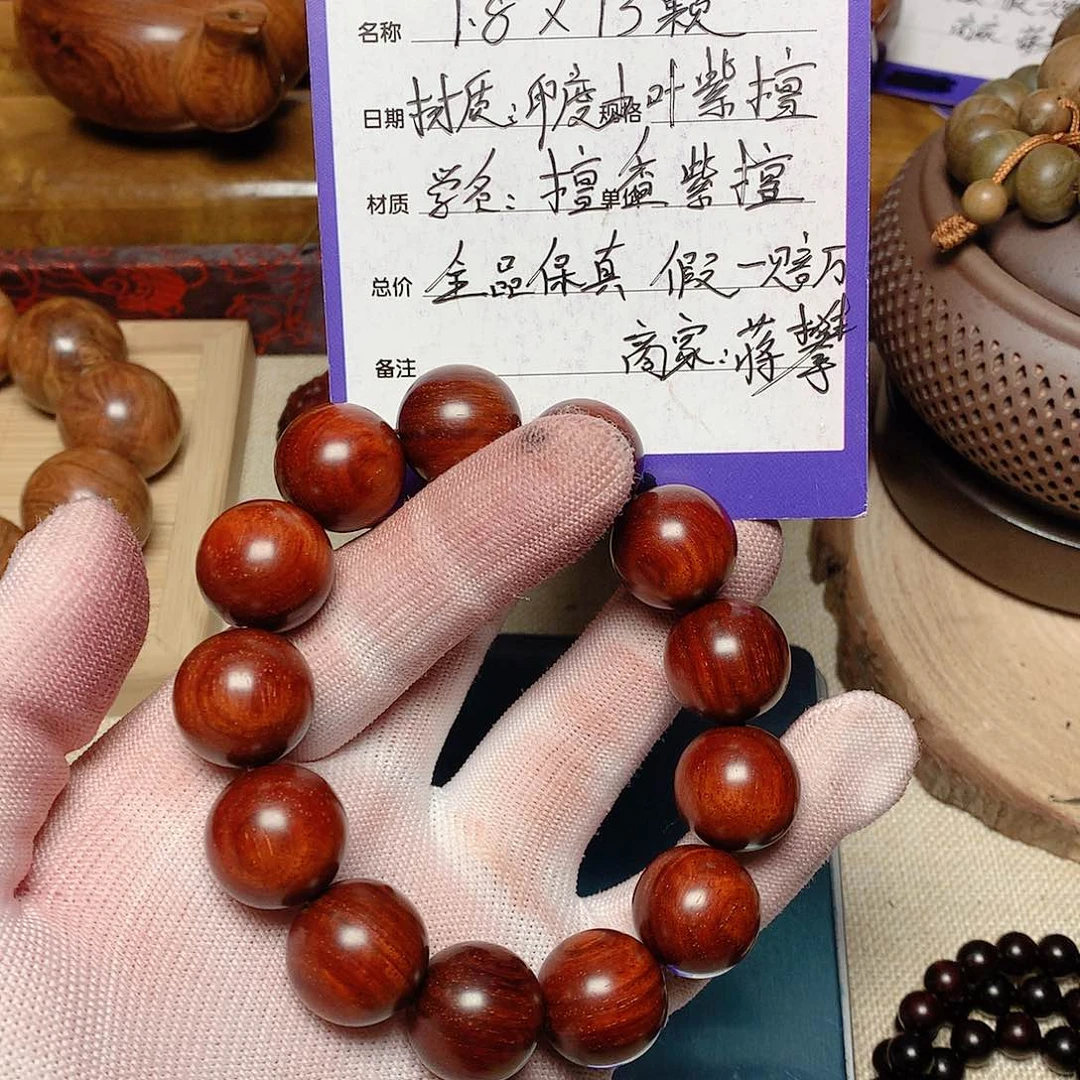 名称 1.8×13颗
日期 材质:印度小叶紫檀 规格
材质 学名:檀香紫檀 单价
总价 全品保真 假一赔万
备注 商家:蒋攀